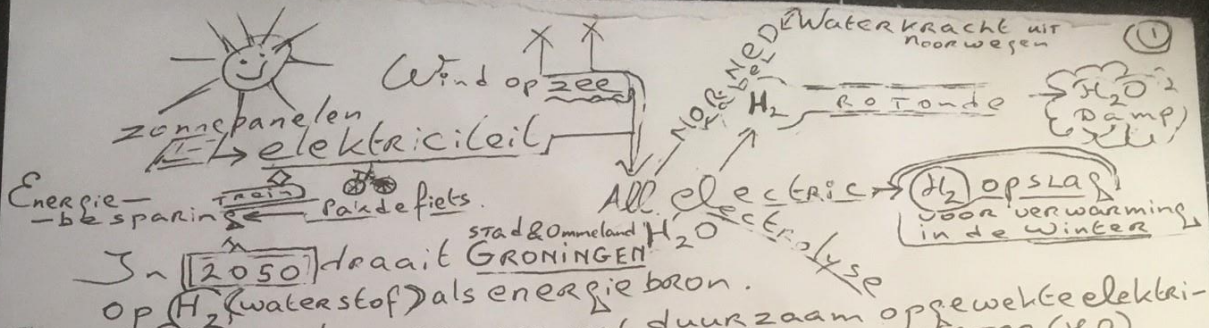 1
Waterkracht uit
Noorwegen
NORNED
kabel
Wind op zee
H2
ROTONDE
H2O
Damp
zonnepanelen
elektriciteit
Energie-
-besparing
Trein
Pak de fiets.
All electric
H2 opslag
voor verwarming
in de winter
H2O
Electrolyse
stad & ommeland
In 2050 draait GRONINGEN
op H2 (waterstof) als energie bron.
duurzaam opgewekte elektri-